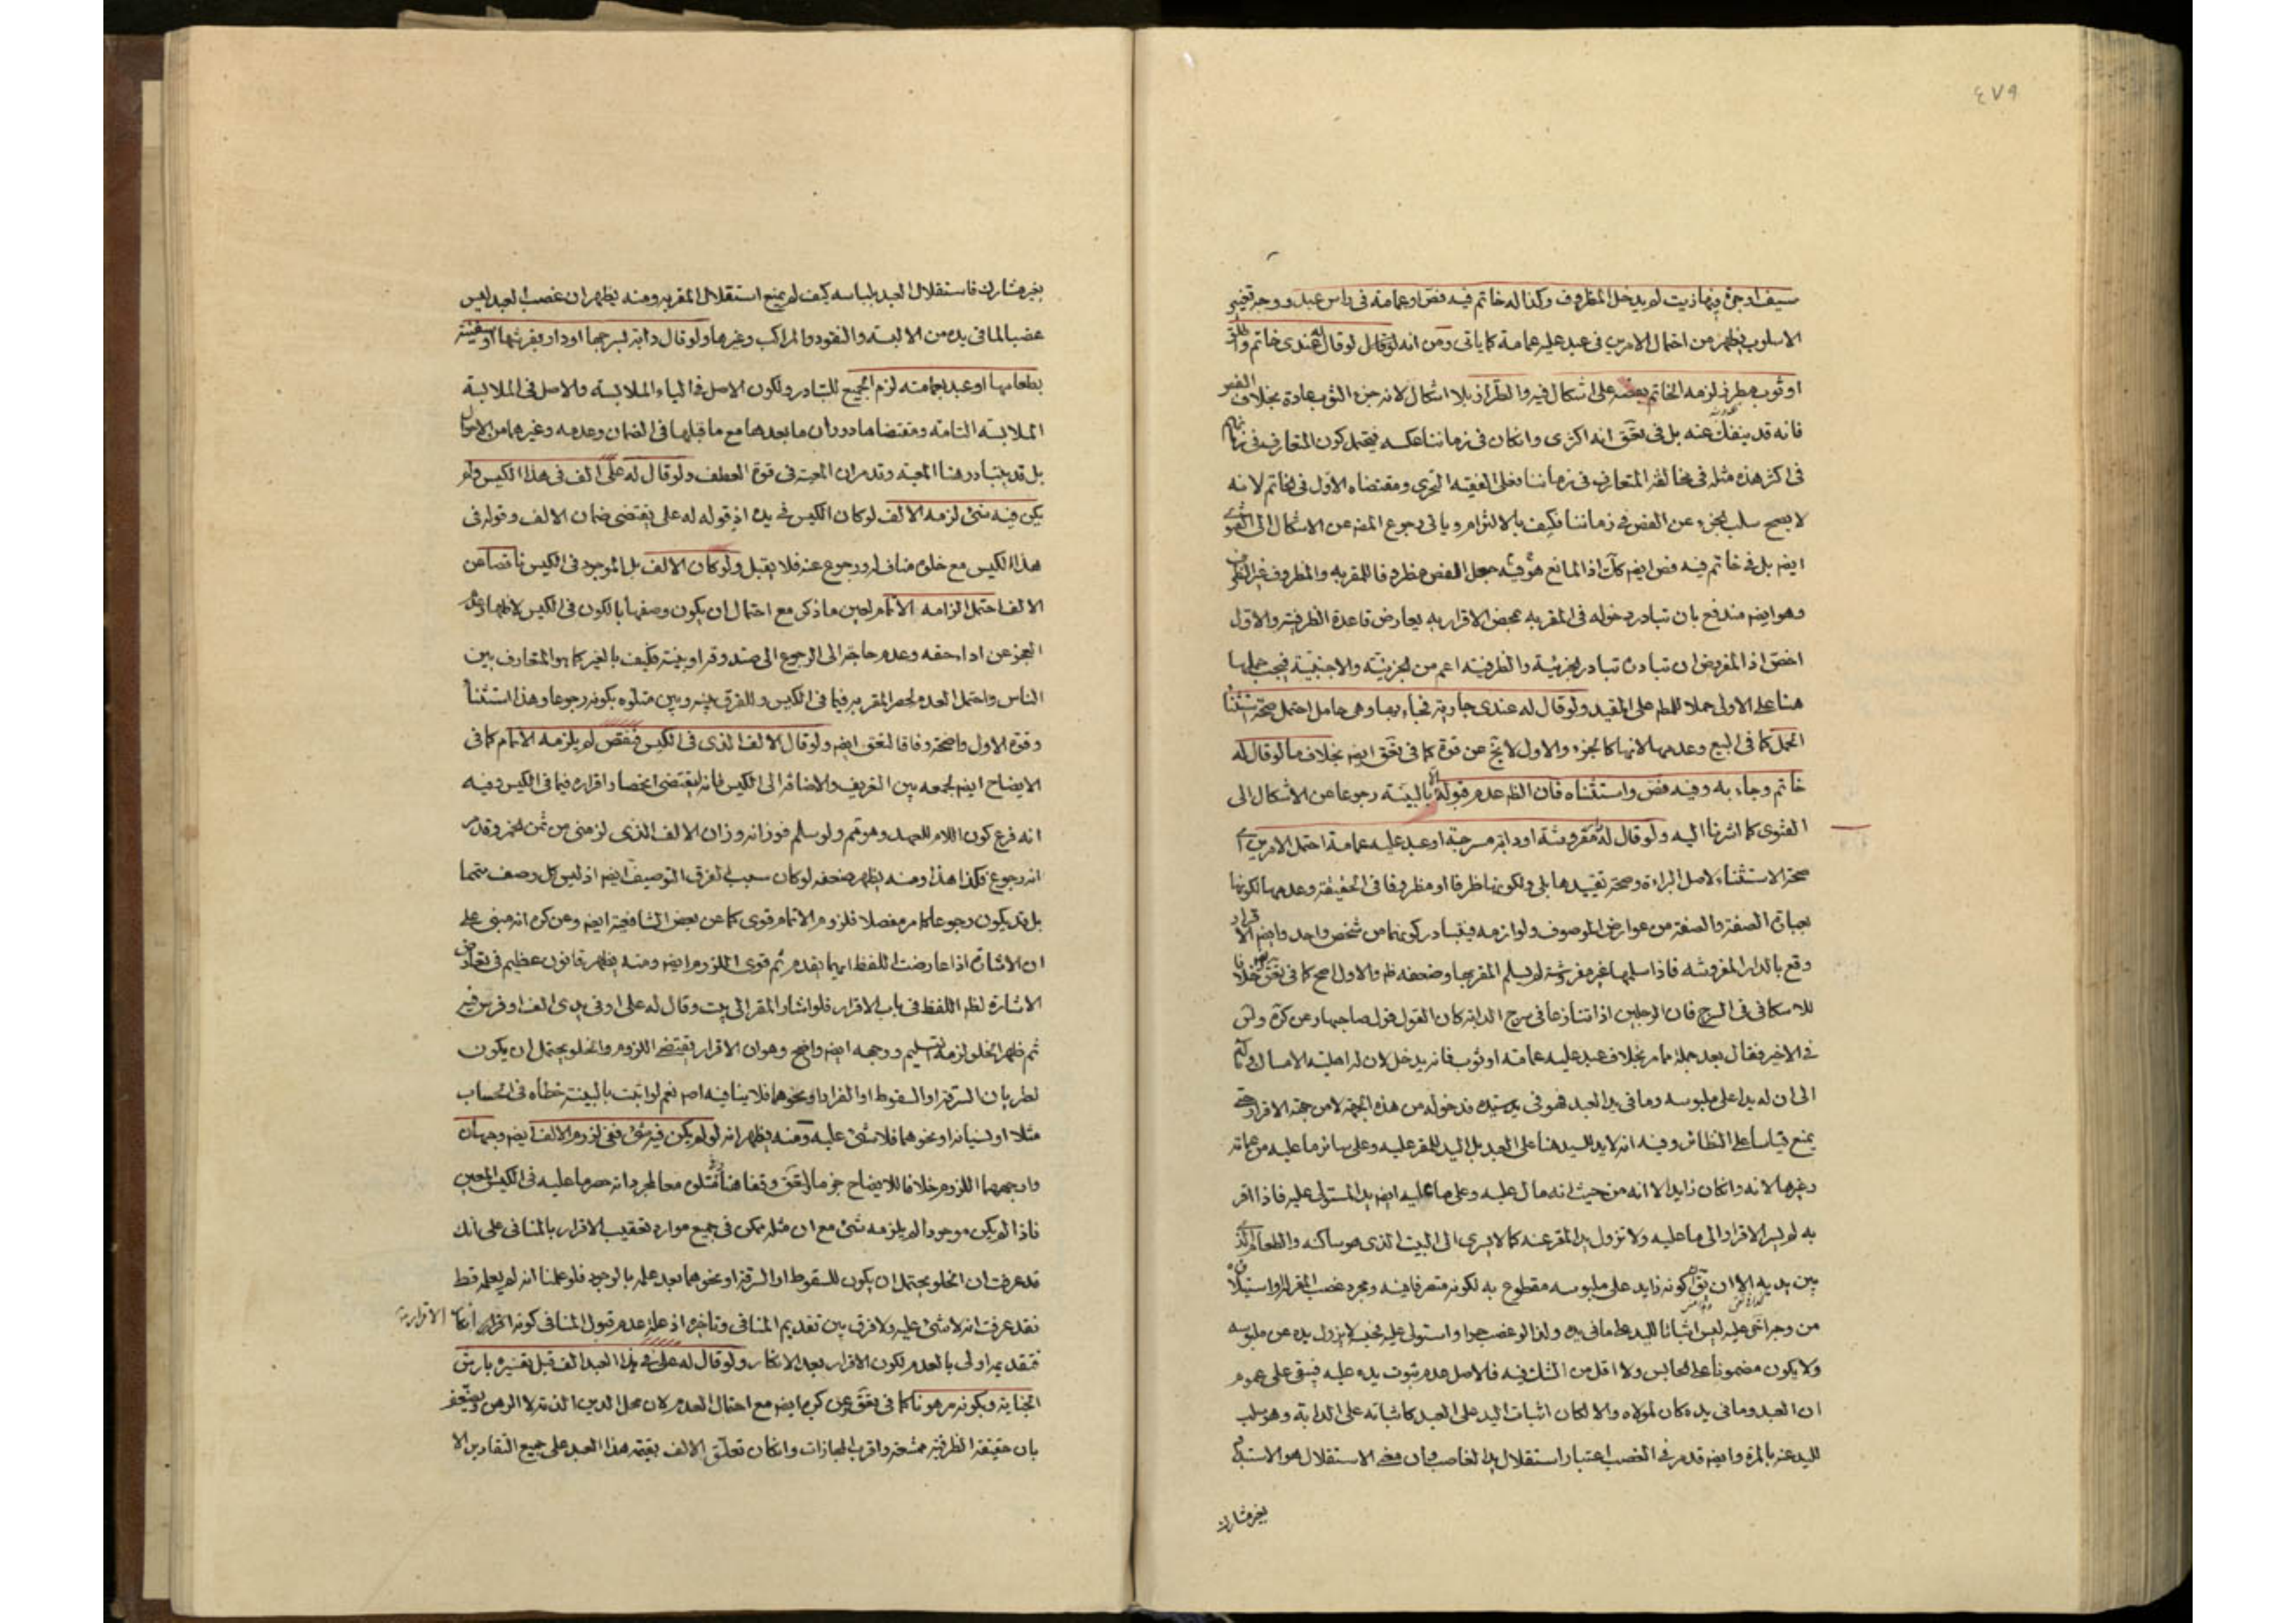 ٤٧٩
سيف او جرة فيها زيت لم يدخل المظروف وكذا له خاتم فيه فص او عمامة في راس عبد ووجه تغيير
الاسلوب يظهر من احتمال الامرين في عبد عليه عمامة كما ياتى ومن انه لو قال له عندى خاتم واطلق
او ثوب مطرز لزمه الخاتم بفصه على اشكال فيه والطراز بلا اشكال لانه جزء الثوب عادة بخلاف الفص
فانه قد ينفك عنه بل في انه اكثرى وان كان في زماننا عكسه فيحتمل كون المتعارف في زمانهم
في اكثر هذه مثله في مخالفة المتعارف في زماننا فعلى الفقيه التحرى ومقتضاه الاول في الخاتم لانه
لا يصح سلب الجزء عن الفص في زماننا فكيف بالالتزام وياتى رجوع المص عن الاشكال الى الفتوى
ايضا بل في خاتم فيه فص ايضا كك اذ المانع هو فيه جعل الفص مظروفا للمقر به والمظروف غير الظرف
وهو ايضا مندفع بان تبادر دخوله في المقر به بمحض الاقرار به يعارض قاعدة الظرفية والاول
اخص اذ المفروض ان تبادره تبادر الجزئية والظرفية اعم من الجزئية والاجنبية فيجب حملها
هنا على الاولى حملا للمطلق على المقيد ولو قال له عندى جارية فجاء بها وهى حامل احتمل صحة استثناء
الحمل كما في البيع وعدمها لانها كالجزء والاول لا يخ عن قوة كما في ايضا بخلاف ما لو قال له
خاتم وجاء به وفيه فص واستثناه فان الظاهر عدم قبوله الا بالبينة رجوعا عن الاشكال الى
الفتوى كما اشرنا اليه ولو قال له دار مفروشة او دابة مسرجة او عبد عليه عمامة احتمل الامرين اى
صحة الاستثناء لاصل البراءة وصحة تقييدها بلى ولكونها ظرفا او مظروفا في الحقيقة وعدمها لكونها
بعبارة الصفة والصفة من عوارض الموصوف ولوازمه فيتبادر كونهما من شخص واحد وايضا الاقرار
وقع بالدار المفروشة فاذا سلمها غير مفروشة لم يسلم المقر بها وضعفه ظ والاول اصح كما في خلافا
للاسكافى في السرج فان الرجلين اذا تنازعا في سرج الدابة كان القول قول صاحبها وعن كره ولس
في الاخير فقال بعد جملة مما مر بخلاف عبد عليه عمامة او ثوب فانه يدخل لان له اهلية الامساك
الى ان له يدا على ملبوسه وما في يد العبد فهو في يد سيده فدخوله من هذه الجهة لا من جهة الاقرار حتى
يمنع قياسا على النظائر وفيه انه لا يد للسيد هنا على العبد بل اليد للمقر عليه وعلى سائر ما عليه من عمامة
وغيرها لانه وان كان زايدا الا انه من حيث انه مال عليه وعلى ما عليه ايضا يد المستولى عليه فاذا اقر
به لم يسر الاقرار الى ما عليه ولا تزول يد المقر عنه كما لا يسرى الى البيت الذى هو ساكنه والطعام الذى
بين يديه الا ان يق كونه زايد على ملبوسه مقطوع به لكونه متصرفا فيه ومجرد غصب المقر له واستيلائه
من وجه اخر عليه ليس اثباتا لليد على ما في يده ولذا لو غصب حرا واستولى عليه بحيث لا يزول يده عن ملبوسه
ولا يكون مضمونا على الحابس ولا اقل من الشك فيه فالاصل عدم ثبوت يده عليه فيبقى على عموم
ان العبد وما في يده كان لمولاه والا لكان اثبات اليد على العبد كاثباته على الدابة وهو سلب
لليد عنه بالمرة وايضا قد مر في الغصب اعتبار استقلال يد الغاصب وان معنى الاستقلال هو الاستبداد
بغير مشارك
بغير مشارك فاستقلال العبد بلباسه كيف لم يمنع استقلال المقر به ومنه يظهر ان غصب العبد ليس
غصبا لما في يده من الالبسة والنقود والمراكب وغيرها ولو قال دابة بسرجها او دار بفرشها او سفينة
بطعامها او عبد بعمامته لزم الجميع للتبادر ولكون الاصل في الباء الملابسة والاصل في الملابسة
الملابسة التامة ومقتضاها دوران ما بعدها مع ما قبلها في الضمان وعدمه وغيرهما من الاحوال
بل قد يتبادر هنا المعية وقد مر ان المعية في قوة العطف ولو قال له على الف في هذا الكيس ولم
يكن فيه شئ لزمه الالف لو كان الكيس في يده اذ قوله له على يقتضى ضمان الالف وقوله في
هذا الكيس مع خلوه مناف له ورجوع عنه فلا يقبل ولو كان الالف بل الموجود في الكيس ناقصا عن
الالف احتمل الزامه الاتمام لعين ما ذكر مع احتمال ان يكون وصفها بالكون في الكيس لاظهار
العجز عن اداء حقه وعدم حاجة الى الرجوع الى صندوقه او بيته فكيف بالغير كما هو المتعارف بين
الناس واحتمل العدم لحصر المقر به فيما في الكيس والفرق بينه وبين متلوه بكونه رجوعا وهذا استثناء
وقوة الاول واضحة وفاقا ايضا ولو قال الالف الذى في الكيس فنقص لم يلزمه الاتمام كما في
الايضاح ايضا لجمعه بين التعريف والاضافة الى الكيس فانه يقتضى انحصار اقراره فيما في الكيس وفيه
انه فرع كون اللام للعهد وهو ثم ولو سلم فوزانه وزان الالف الذى لزمنى من ثمن الخمر وقد مر
انه رجوع فكذا هذا ومنه يظهر ضعفه لو كان سبب الفرق التوصيف ايضا اذ ليس كل وصف متمما
بل قد يكون رجوعا كما مر مفصلا فلزوم الاتمام قوى كما عن بعض الشافعية ايضا وعن كره انه مبنى على
ان الاشارة اذا عارضت اللفظ ايهما يقدم ثم قوى اللزوم ايضا ومنه يظهر قانون عظيم في تعارض
الاشارة لظاهر اللفظ في باب الاقرار فلو اشار المقر الى بيت وقال له على او في يدى الف او فرس فيه
ثم ظهر الخلو لزمه التسليم ووجهه ايضا واضح وهو ان الاقرار يقتضى اللزوم والخلو يحتمل ان يكون
لطريان السرقة او السقوط او الفرار او نحوها فلا ينافيه اصلا نعم لو اثبت بالبينة خطأه في الحساب
مثلا او نسيانه او نحوهما فلا شئ عليه ومنه يظهر انه لو لم يكن فيه شئ ففى لزوم الالف ايضا وجهان
وارجحهما اللزوم خلافا للايضاح وفي متلوه معا لمجرد انه حصر ما عليه في الكيس المعين
فاذا لم يكن موجودا لم يلزمه شئ مع ان مثله ممكن في جميع موارد تعقيب الاقرار بالمنافى على انك
قد عرفت ان الخلو يحتمل ان يكون للسقوط او السرقة او نحوهما بعد علمه بالوجود فلو علمنا انه لم يعلمه قط
فقد عرفت انه لا شئ عليه ولا فرق بين تقديم المنافى وتاخيره اذ علة عدم قبول المنافى كونه
فتقديمه اولى بالعدم لكون الاقرار بعد الانكار ولو قال له على في هذا العبد الف قبل تفسيره بارش
الجناية وبكونه مرهونا كما في وعن كره ايضا مع احتمال العدم لان محل الدين الذمة لا الرهن ويضعف
بان حقيقة الظرفية ممتنعة واقرب المجازات وان كان تعلق الالف بقيمة هذا العبد على جميع التقادير الا